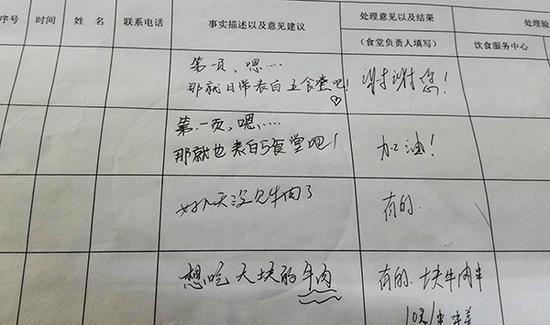 序号 时间 姓名 联系电话 事实描述以及意见建议 处理意见以及结果 处理验
(食堂负责人填写) 饮食服务中心
第一页,嗯……
那就日常表白五食堂吧!♡
谢谢您!
第一页,嗯……
那就也表白5食堂吧!
加油!
好几天没见牛肉了
有的.
想吃大块的牛肉
有的.大块牛肉半